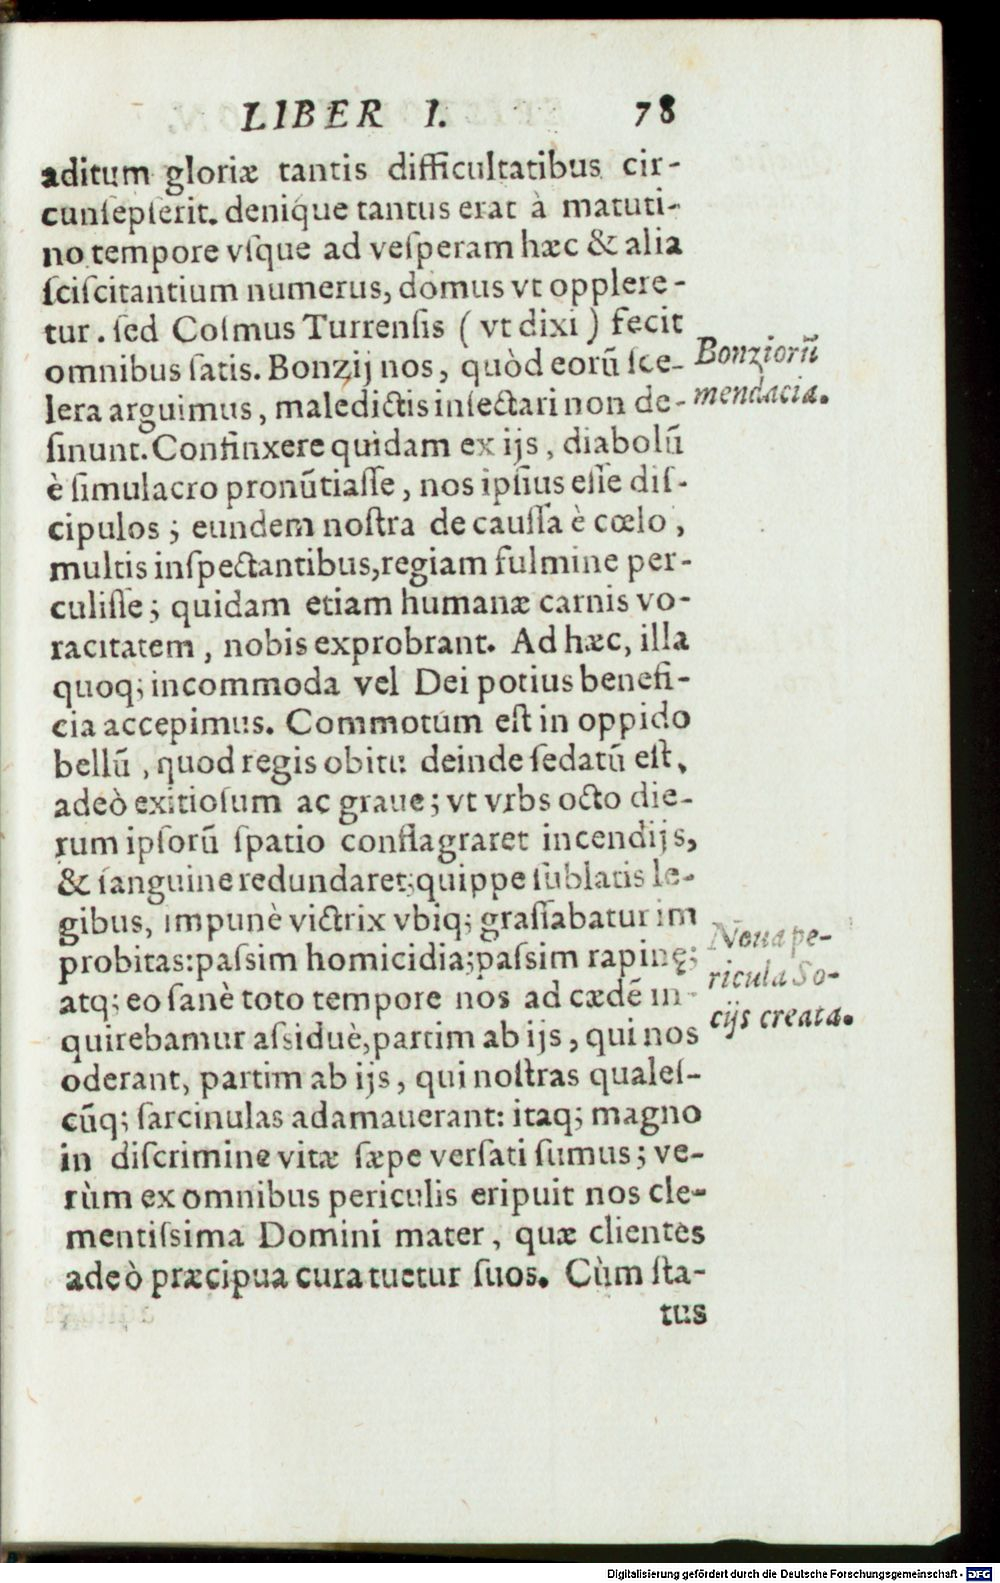 LIBER I. 78
aditum gloriæ tantis difficultatibus cir-
cunſepſerit. denique tantus erat à matuti-
no tempore vſque ad veſperam hæc & alia
ſciſcitantium numerus, domus vt opplere-
tur. ſed Coſmus Turrenſis (vt dixi) fecit
omnibus ſatis. Bonzij nos, quòd eorũ ſce-
lera arguimus, maledictis inſectari non de-
ſinunt. Confinxere quidam ex ijs, diabolũ
è ſimulacro pronũtiaſſe, nos ipſius eſſe diſ-
cipulos; eundem noſtra de cauſſa è cœlo,
multis inſpectantibus, regiam fulmine per-
culiſſe; quidam etiam humanæ carnis vo-
racitatem, nobis exprobrant. Ad hæc, illa
quoq; incommoda vel Dei potius benefi-
cia accepimus. Commotum eſt in oppido
bellũ, quod regis obitu deinde ſedatũ eſt,
adeò exitioſum ac graue; vt vrbs octo die-
rum ipſorũ ſpatio conflagraret incendijs,
& ſanguine redundaret; quippe ſublatis le-
gibus, impunè victrix vbiq; graſſabatur im
probitas: paſsim homicidia; paſsim rapinę;
atq; eo ſanè toto tempore nos ad cædẽ in-
quirebamur aſsiduè, partim ab ijs, qui nos
oderant, partim ab ijs, qui noſtras qualeſ-
cũq; ſarcinulas adamauerant: itaq; magno
in diſcrimine vitæ ſæpe verſati ſumus; ve-
rùm ex omnibus periculis eripuit nos cle-
mentiſsima Domini mater, quæ clientes
adeò præcipua cura tuetur ſuos. Cùm ſta-
tus
Bonziorũ
mendacia.
Noua pe-
ricula So-
cijs creata.
Digitalisierung gefördert durch die Deutsche Forschungsgemeinschaft - DFG